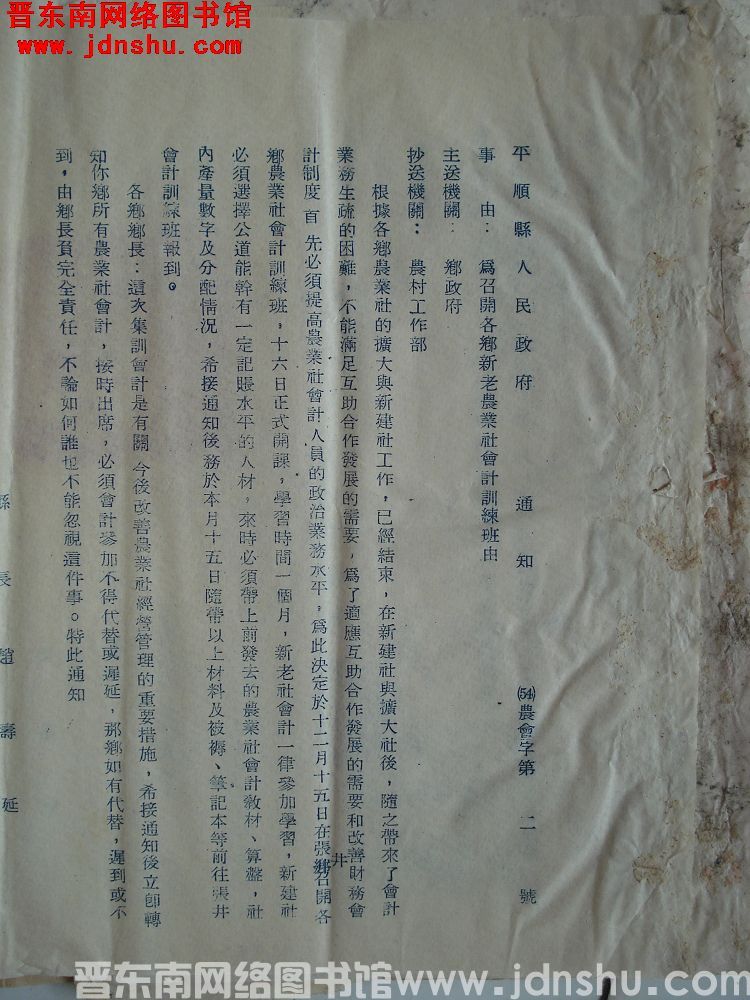 晋东南网络图书馆
www.jdnshu.com
平順縣人民政府 通知 ㈤農會字第二號
事由：爲召開各鄉新老農業社會計訓練班由
主送機關：鄉政府
抄送機關：農村工作部
根據各鄉農業社的擴大與新建社工作，已經結束，在新建社與擴大社後，隨之帶來了會計
業務生疏的困難，不能滿足互助合作發展的需要，爲了適應互助合作發展的需要和改善財務會
計制度首先必須提高農業社會計人員的政治業務水平，爲此決定於十二月十五日在張井召開各
鄉農業社會計訓練班，十六日正式開課，學習時間一個月，新老社會計一律參加學習，新建社
必須選擇公道能幹有一定記賬水平的人材，來時必須帶上前發去的農業社會計教材、算盤，社
內產量數字及分配情況，希接通知後務於本月十五日隨帶以上材料及被褥、筆記本等前往張井
會計訓練班報到。
各鄉鄉長：這次集訓會計是有關今後改善農業社經營管理的重要措施，希接通知後立卽轉
知你鄉所有農業社會計，按時出席，必須會計參加不得代替或遲延，那鄉如有代替，遲到或不
到，由鄉長負完全責任，不論如何誰也不能忽視這件事。特此通知
縣長趙壽延
晋东南网络图书馆www.jdnshu.com